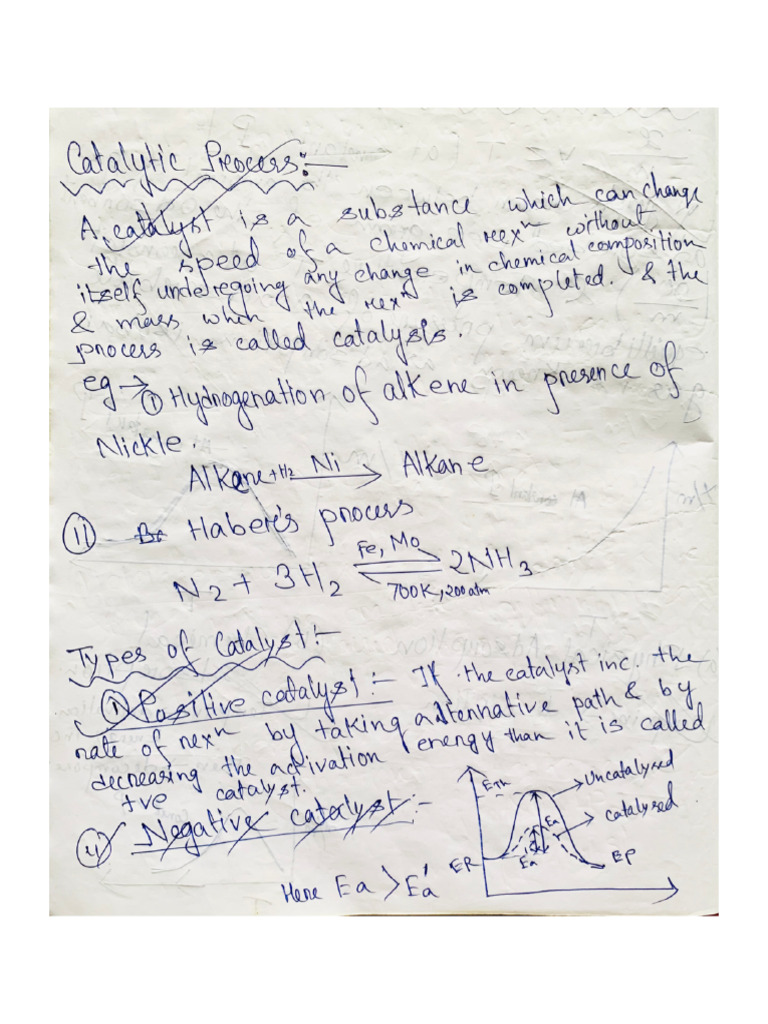 Catalytic Process:—
A catalyst is a substance which can change
the speed of a chemical reexⁿ without
itself underegoing any change in chemical composition
& mass when the rexⁿ is completed. & the
process is called catalysis.
eg → ① Hydrogenation of alkene in presence of
Nickle.
Alkene + H2 Ni → Alkane
⑪ Haber's process
N2 + 3H2 Fe, Mo ⇌ 700K, 200 atm 2NH3
Types of Catalyst:-
① Positive catalyst:- If the catalyst inc. the
rate of rexⁿ by taking alternative path & by
decreasing the activation energy than it is called
+ve catalyst.
Negative catalyst:-
ETh
Uncatalysed
catalysed
Ea
Ea
ER
EP
Here Ea > Ea'